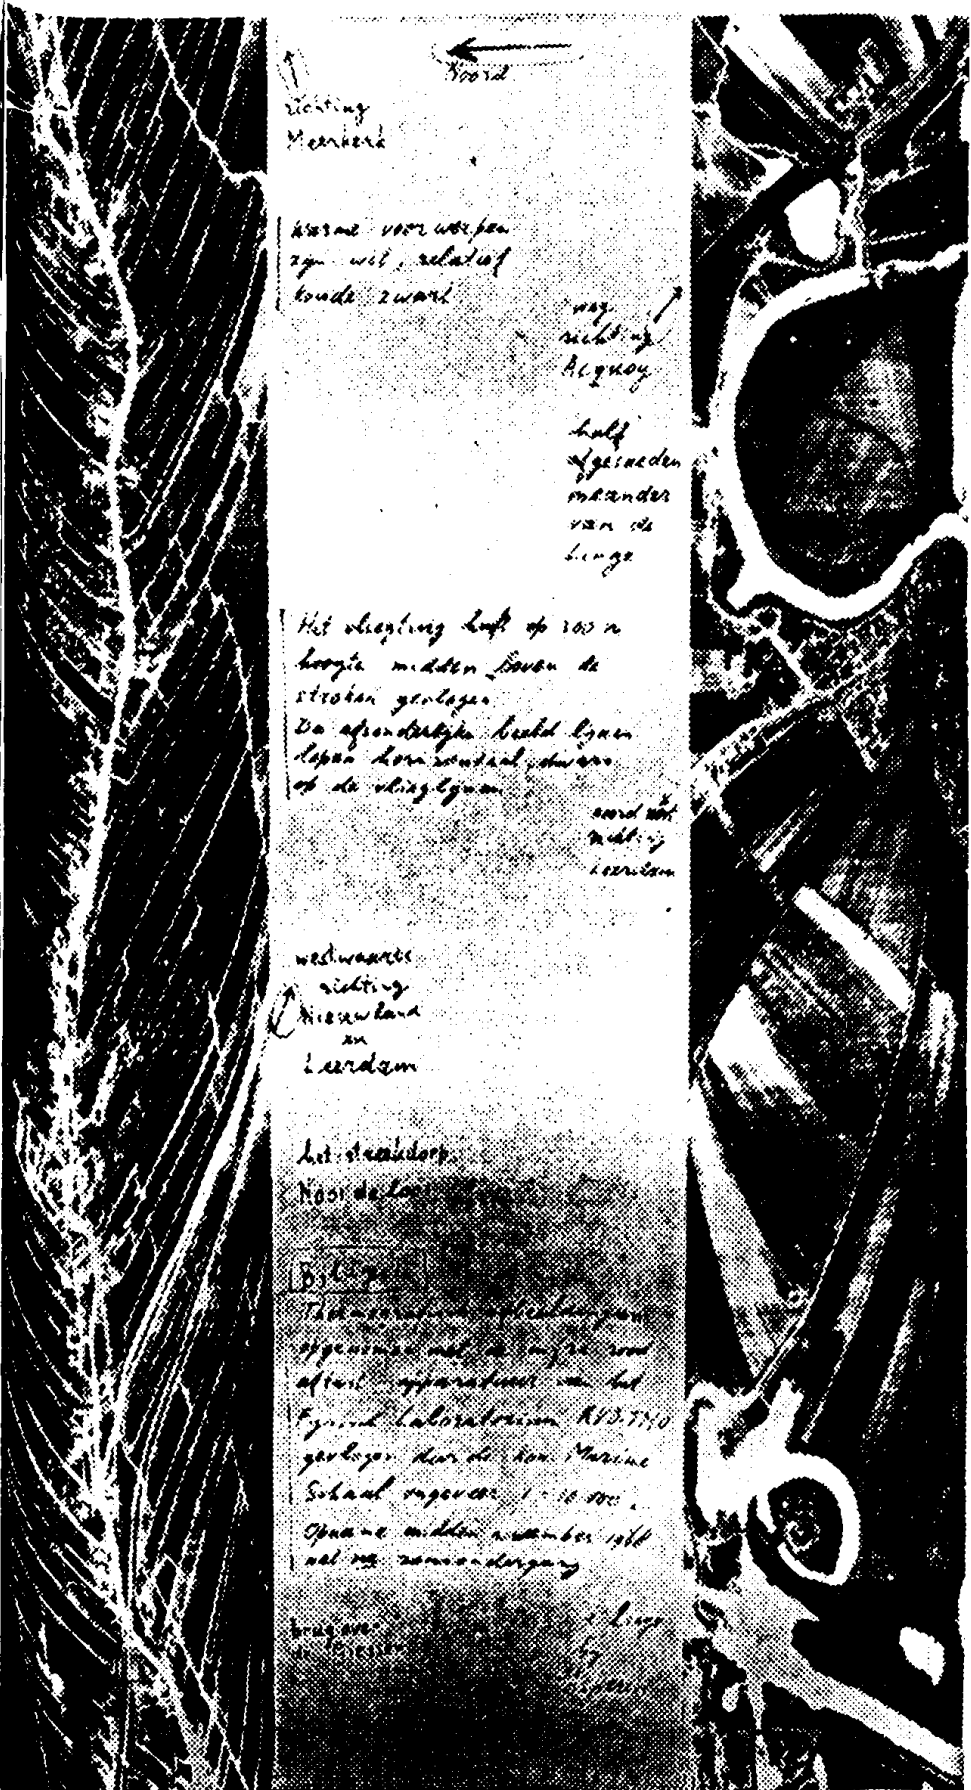 Noord
richting
Meerkerk
warme voorwerpen
zijn wit, relatief
koude zwart
weg
richting
Acquoy
half
afgesneden
meander
van de
Linge
Het vliegtuig heeft op 300 m
hoogte midden boven de
stroken gevlogen
De afzonderlijke beeld lijnen
lopen horizontaal, dwars
op de vlieglijnen
noord
richting
Leerdam
westwaarts
richting
Nieuwland
en
Leerdam
het streekdorp
Noordeloos
opgenomen met de infra rood
aftast apparatuur van het
Fysisch Laboratorium RVO-TNO
gevlogen door de Kon. Marine
Schaal ongeveer
Opname midden november
net na zonsondergang
brug over
Linge
bij